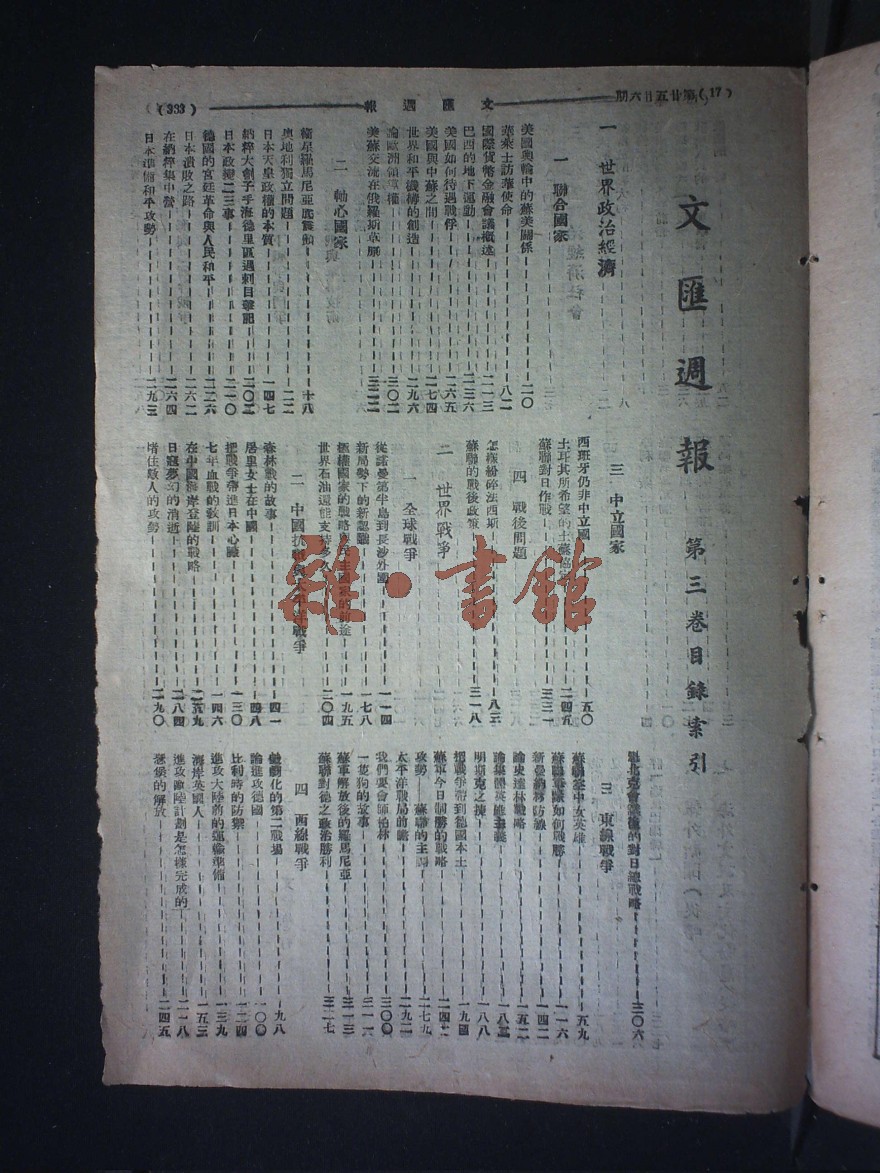 (17)
文匯週報
(333)
文匯週報 第三卷目錄索引
一 世界政治經濟
一 聯合國家
美國輿論中的蘇美關係 二〇
華萊士訪華使命 八二
國際貨幣金融會議概述 二一三
巴西的地下運動 二三六
美國如何待遇戰俘 二六五
美國與中蘇之間 二七四
世界和平機構的創造 二九六
論歐洲領導權 三〇二
美蘇交流在俄羅斯草原 三二二
二 軸心國家
衛星羅馬尼亞底震動 十八
奧地利獨立問題 二二
日本天皇政權的本質 一四七
納粹大劊子手海德里區遇刺目擊記 二〇三
日本政變二三事 二一〇
德國的宮廷革命與人民和平 二二六
日本潰敗之路 二六二
在納粹集中營 二六四
日本準備和平攻勢 二九三
三 中立國家
西班牙仍非中立國 五〇
土耳其所希望的土蘇協 二四五
蘇聯對日作戰 三三一
四 戰後問題
怎樣紛碎法西斯 八三
蘇聯的戰後政策 三一八
二 世界戰爭
一 全球戰爭
從諾曼第半島到長沙外圍 一一四
新局勢下的新認識 一七八
極權國家的戰略與民主國家的前途 一九五
世界石油還能支持多久 二〇四
二 中國抗戰與太平洋戰爭
森林戰的故事 四一
居里女士在中國 四八
把戰爭帶進日本心臟 一三〇
七年血戰的教訓 一四六
在中國海岸登陸的戰略 二五九
日寇夢幻的消逝 二八四
堵住敵人的攻勢 二九〇
魁北克會議後的對日總戰略 三〇六
三 東線戰爭
蘇聯空中女英雄 五九
蘇聯軍隊如何戰勝 一一六
新曼納林防線 一四二
論史達林戰略 一五二
論集體英雄主義 一八三
明斯克之捷 一八八
把戰爭帶到德國本土 一九四
蘇軍今日制勝的戰略 二四二
攻勢——蘇聯的主調 二七九
太平洋戰局的瞻 二九二
我們要會師柏林 三〇〇
一隻狗的故事 三一一
蘇軍解放後的羅馬尼亞 三一三
蘇聯對德之政治勝利 三二七
四 西線戰爭
戲劇化的第二戰場 九八
論進攻德國 一〇〇
比利時的防禦 一二四
進攻大陸前的運輸準備 一三九
海岸英國人 一五三
進攻歐陸計劃是怎樣完成的 二一八
瑟堡的解放 二四五
雜·書館